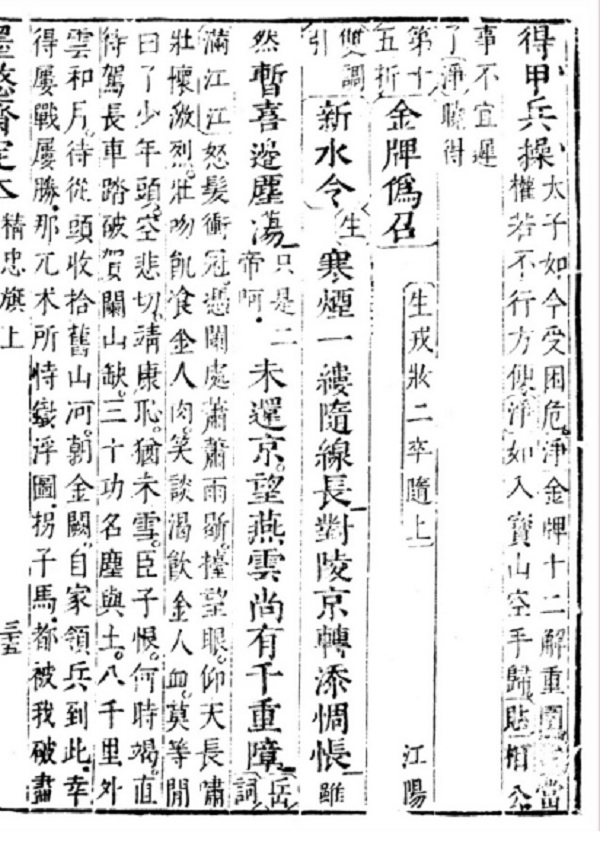 得甲兵操
太子如今受困危。淨金牌十二解重圍。當
權若不行方便。淨如入寶山空手歸。貼相公
事不宜遲
了淨曉得
第十
五折
金牌偽召
生戎妝二卒隨上
江陽
雙調
引
新水令
生
寒煙一縷隨線長。對陵京轉添惆悵
雖
然暫喜邊塵蕩
只是二
帝呵
未還京。望燕雲尚有千重障。
岳
詞
滿江江怒髮衝冠。憑闌處蕭蕭雨歇。擡望眼。仰天長嘯
壯懷激烈。壯吻飢飡金人肉。笑談渴飲金人血。莫等閒
白了少年頭。空悲切。靖康恥。猶未雪。臣子恨。何時竭。直
待駕長車踏破賀闌山缺。三十功名塵與土。八千里外
雲和月。待從頭收拾舊山河。朝金闕。自家領兵到此。幸
得屢戰屢勝。那兀术所恃鐵浮圖。拐子馬。都被我破盡
墨憨齋定本
精忠旗上
三十五